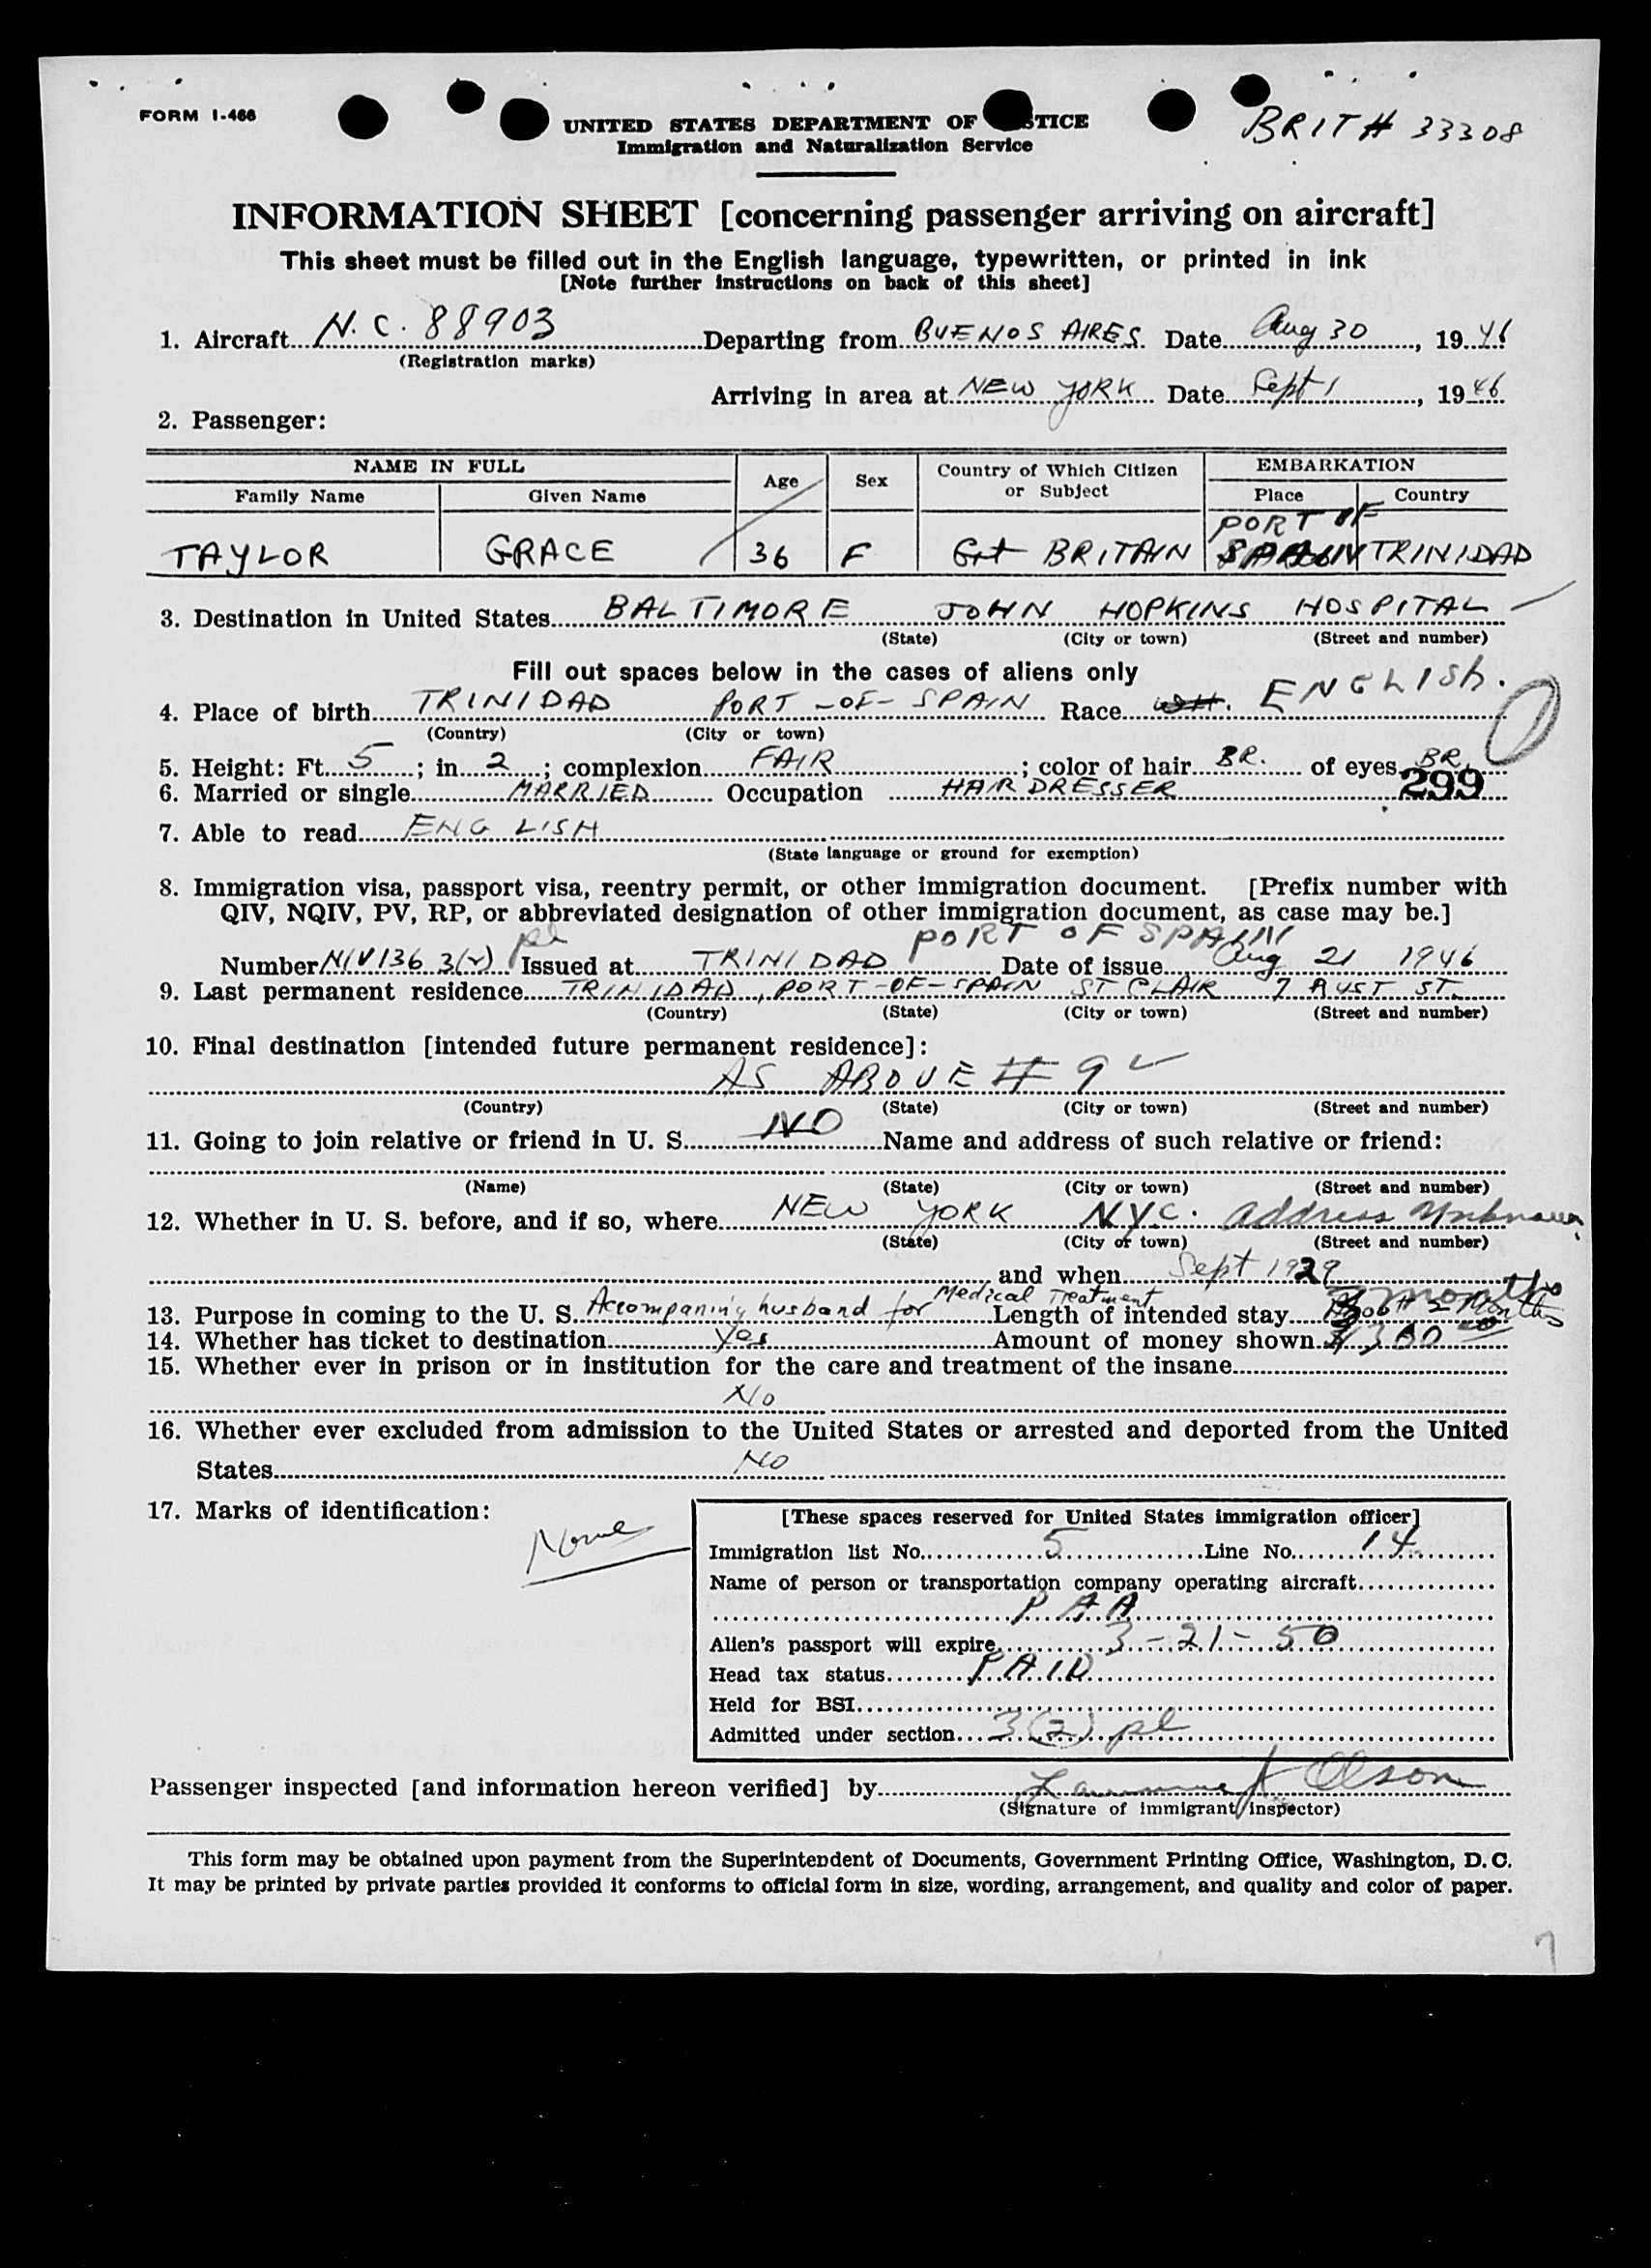 FORM I-466
BRIT # 33308
UNITED STATES DEPARTMENT OF STICE
Immigration and Naturalization Service
INFORMATION SHEET [concerning passenger arriving on aircraft]
This sheet must be filled out in the English language, typewritten, or printed in ink
[Note further instructions on back of this sheet]
1. Aircraft N.C. 88903 Departing from BUENOS AIRES. Date Aug 30, 1946
(Registration marks)
Arriving in area at NEW YORK Date Sept 1, 1946
2. Passenger:
NAME IN FULL Age Sex Country of Which Citizen or Subject EMBARKATION
Family Name Given Name Place Country
PORT OF
TAYLOR GRACE 36 F Grt BRITAIN SPAIN TRINIDAD
3. Destination in United States BALTIMORE JOHN HOPKINS HOSPITAL
(State) (City or town) (Street and number)
Fill out spaces below in the cases of aliens only
4. Place of birth TRINIDAD PORT-OF-SPAIN Race ENGLISH.
(Country) (City or town)
5. Height: Ft. 5; in. 2; complexion FAIR; color of hair BR. of eyes BR.
6. Married or single MARRIED Occupation HAIR DRESSER 299
7. Able to read ENGLISH
(State language or ground for exemption)
8. Immigration visa, passport visa, reentry permit, or other immigration document. [Prefix number with
QIV, NQIV, PV, RP, or abbreviated designation of other immigration document, as case may be.]
pl PORT OF SPAIN
Number NIV136 3(2) Issued at TRINIDAD Date of issue Aug 21 1946
9. Last permanent residence TRINIDAD, PORT-OF-SPAIN ST CLAIR 7 RUST ST.
(Country) (State) (City or town) (Street and number)
10. Final destination [intended future permanent residence]:
AS ABOVE # 9
(Country) (State) (City or town) (Street and number)
11. Going to join relative or friend in U. S. NO Name and address of such relative or friend:
(Name) (State) (City or town) (Street and number)
12. Whether in U. S. before, and if so, where NEW YORK NYC. address Unknown
(State) (City or town) (Street and number)
and when Sept 1929
Medical Treatment months
13. Purpose in coming to the U. S. Accompaning husband for Length of intended stay 2 Months
14. Whether has ticket to destination Yes Amount of money shown $300
15. Whether ever in prison or in institution for the care and treatment of the insane
No
16. Whether ever excluded from admission to the United States or arrested and deported from the United
States No
17. Marks of identification:
None
[These spaces reserved for United States immigration officer]
Immigration list No. 5 Line No. 14
Name of person or transportation company operating aircraft
PAA
Alien's passport will expire 3-21-50
Head tax status PAID
Held for BSI
Admitted under section 3(2) pl
Passenger inspected [and information hereon verified] by Olson
(Signature of immigrant inspector)
This form may be obtained upon payment from the Superintendent of Documents, Government Printing Office, Washington, D. C.
It may be printed by private parties provided it conforms to official form in size, wording, arrangement, and quality and color of paper.
7